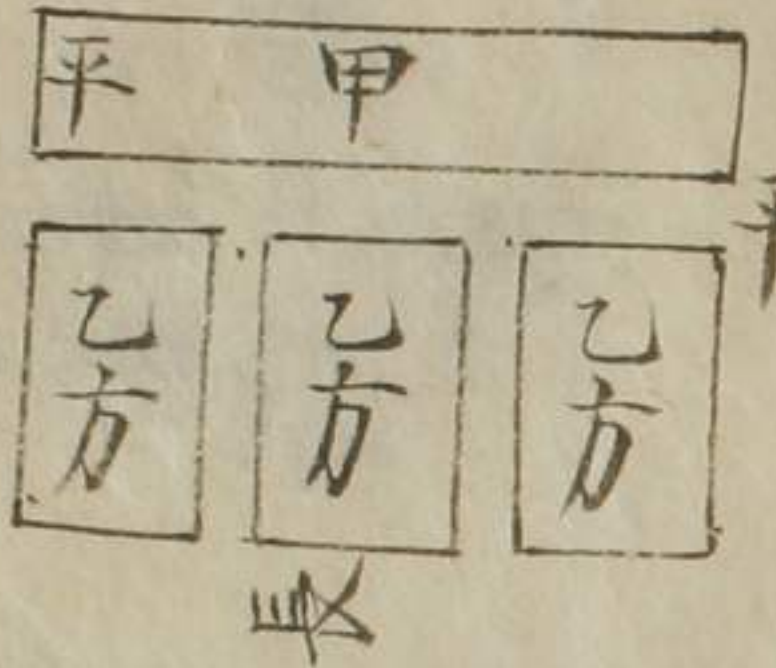 平 甲
乙方 乙方 乙方
長